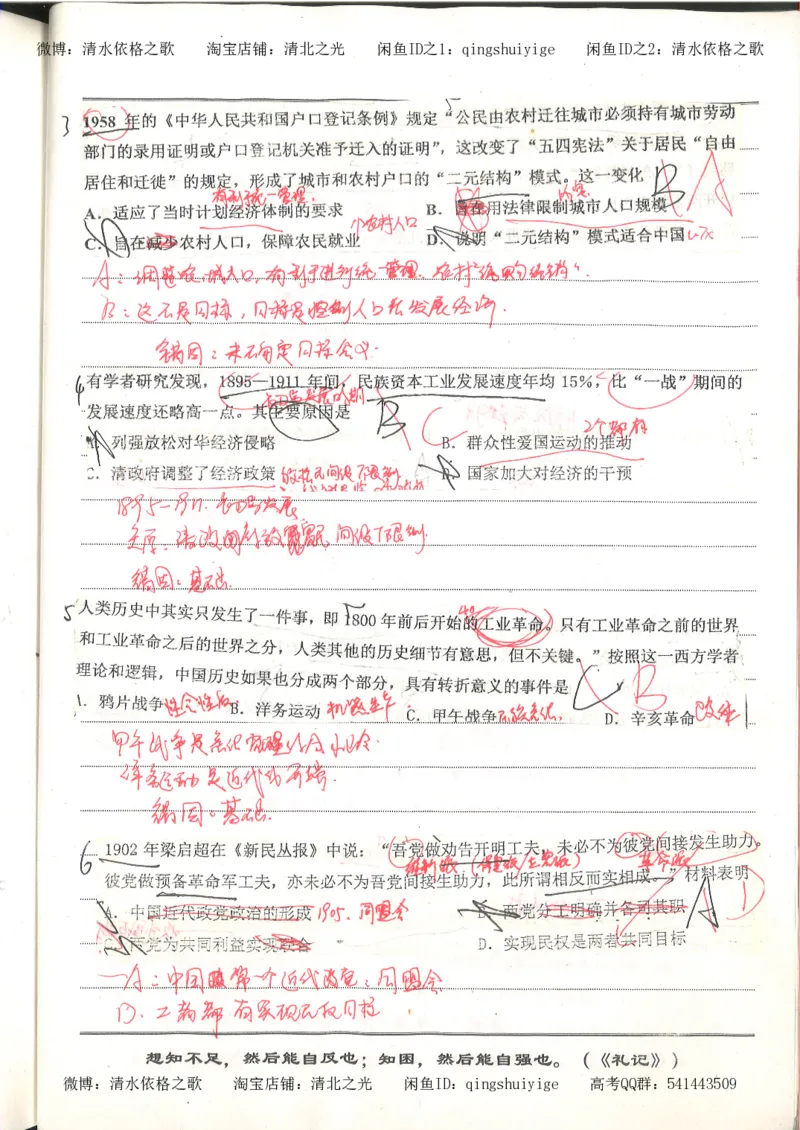 微博：清水依格之歌 淘宝店铺：清北之光 闲鱼ID之1：qingshuiyige 闲鱼ID之2：清水依格之歌
3 1958 年的《中华人民共和国户口登记条例》规定“公民由农村迁往城市必须持有城市劳动
部门的录用证明或户口登记机关准予迁入的证明”，这改变了“五四宪法”关于居民“自由
居住和迁徙”的规定，形成了城市和农村户口的“二元结构”模式。这一变化 B A
有利于统一管理.
A．适应了当时计划经济体制的要求 B．旨在用法律限制城市人口规模
C．旨在减少农村人口，保障农民就业 D．说明“二元结构”模式适合中国
B：这不是目标，目标是控制人口来发展经济.
错因：未确定目标含义.
4 有学者研究发现，1895—1911 年间，民族资本工业发展速度年均 15%，比“一战”期间的
发展速度还略高一点。其主要原因是 B C
2个都有
A．列强放松对华经济侵略 B．群众性爱国运动的推动
C．清政府调整了经济政策 D．国家加大对经济的干预
1895-1911.
错因：基础.
5 人类历史中其实只发生了一件事，即 1800 年前后开始的工业革命。只有工业革命之前的世界
和工业革命之后的世界之分，人类其他的历史细节有意思，但不关键。”按照这一西方学者
理论和逻辑，中国历史如果也分成两个部分，具有转折意义的事件是 C B
A．鸦片战争 B．洋务运动 机器生产 C．甲午战争 D．辛亥革命 政体
洋务运动是近代化开端.
错因：基础.
6 1902 年梁启超在《新民丛报》中说：“吾党做劝告开明工夫，未必不为彼党间接发生助力。
维新派 革命派
彼党做预备革命军工夫，亦未必不为吾党间接生助力，此所谓相反而实相成。”材料表明
A．中国近代政党政治的形成 1905．同盟会 B．两党分工明确并各司其职 A D
C．两党为共同利益实现联合 D．实现民权是两者共同目标
A：中国第一个近代政党：同盟会
D．二者都有实现民权目标
想知不足，然后能自反也；知困，然后能自强也。（《礼记》）
微博：清水依格之歌 淘宝店铺：清北之光 闲鱼ID：qingshuiyige 高考QQ群：541443509